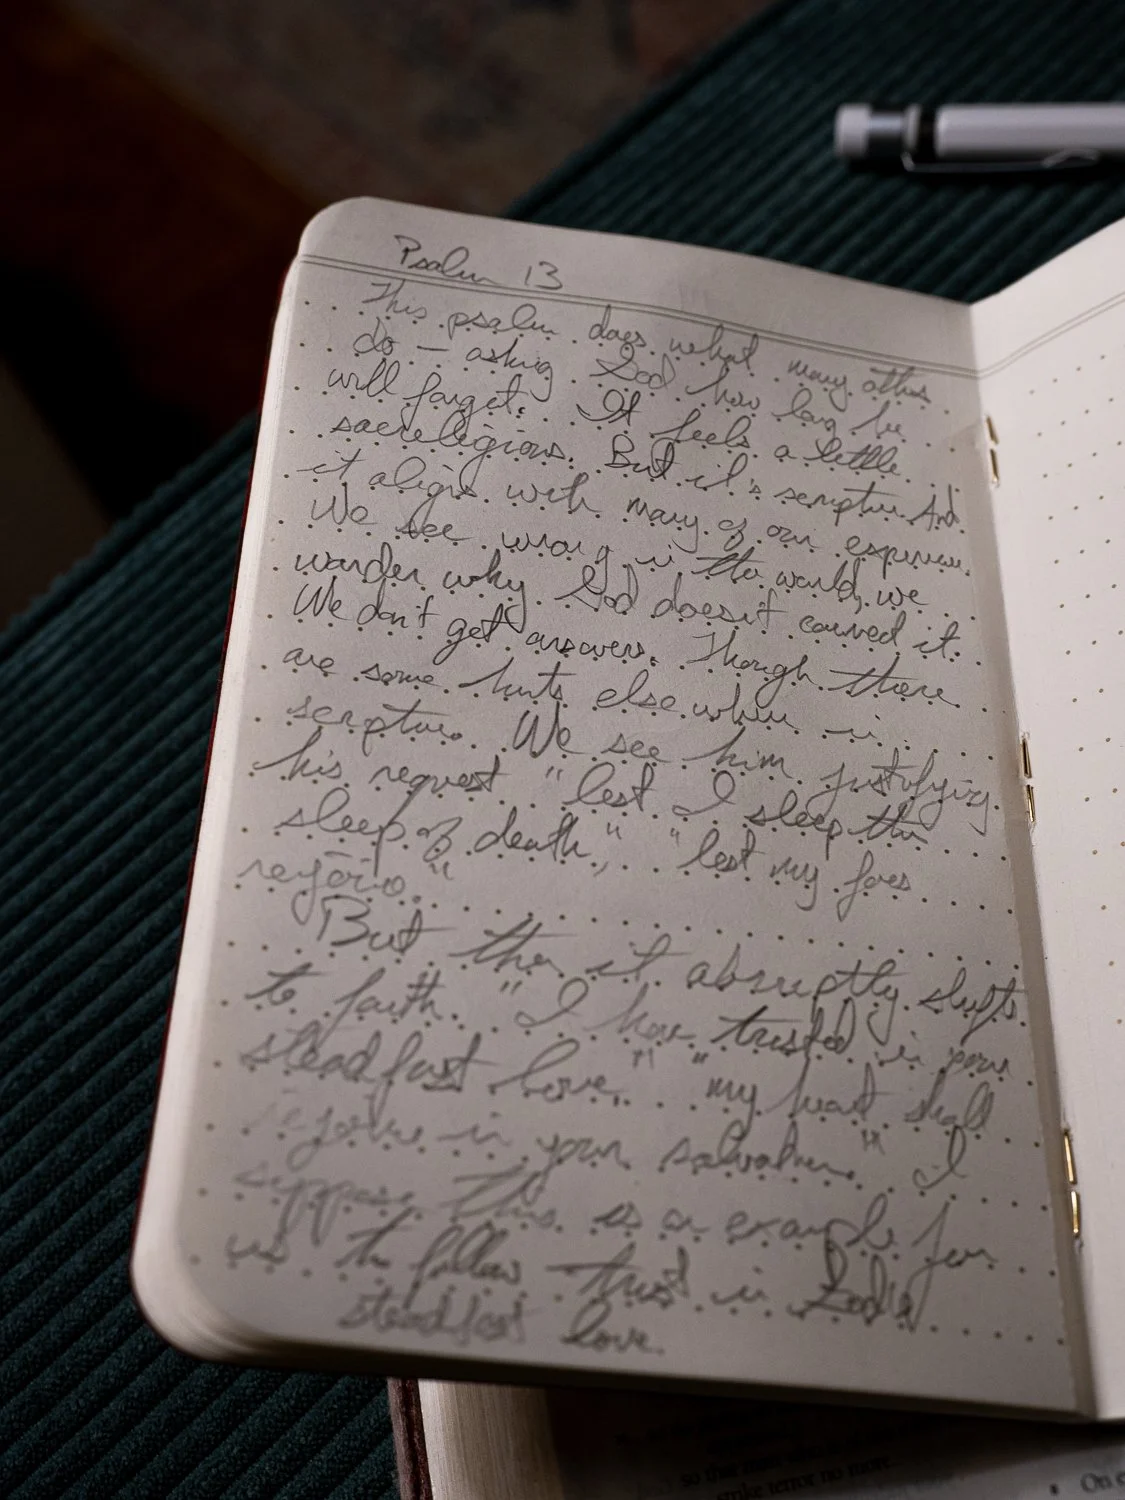 Psalm 13
This psalm does what many others
do — asking God how long he
will forget. It feels a little
sacreligious. But it's scripture. And
it aligns with many of our experience.
We see wrong in the world, we
wonder why God doesn't correct it.
We don't get answers. Though there
are some hints elsewhere in
scripture. We see him justifying
his request "lest I sleep the
sleep of death," "lest my foes
rejoice."
But then it abruptly shifts
to faith. "I have trusted in your
steadfast love," "my heart shall
rejoice in your salvation." I
suppose this is an example for
us to follow trust in God's
steadfast love.
so that man
strike terror no more.
On e